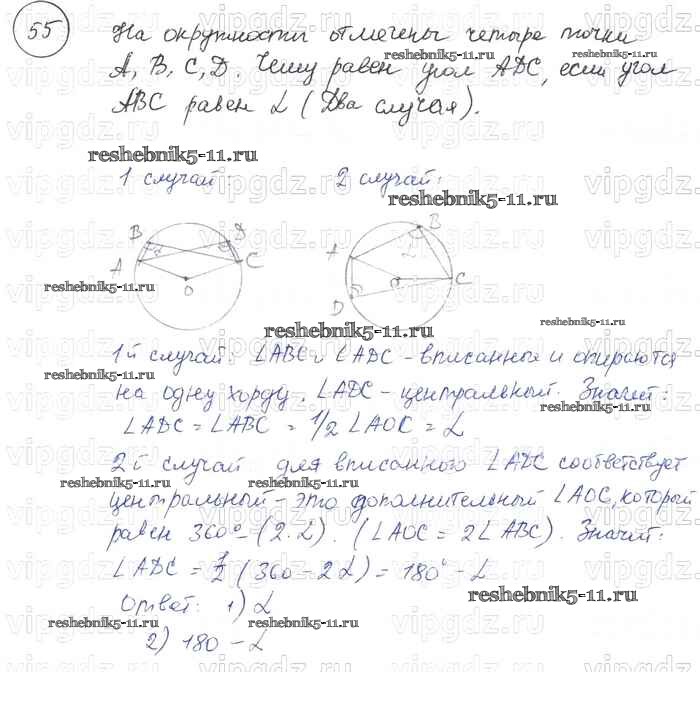 55 На окружности отмечены четыре точки
A, B, C, D. Чему равен угол ADC, если угол
ABC равен α (Два случая).
1 случай 2 случай:
B D A C O
B A α O C D
1й случай: ∠ABC и ∠ADC - вписанные и опираются
на одну хорду. ∠ADC - центральный. Значит:
∠ADC = ∠ABC = 1/2 ∠AOC = α
2й случай для вписанного ∠ADC соответствует
центральный - это дополнительный ∠AOC, который
равен 360° - (2·α). (∠AOC = 2∠ABC). Значит:
∠ADC = 1/2 (360 - 2α) = 180° - α
Ответ: 1) α
2) 180 - α
reshebnik5-11.ru
vipgdz.ru